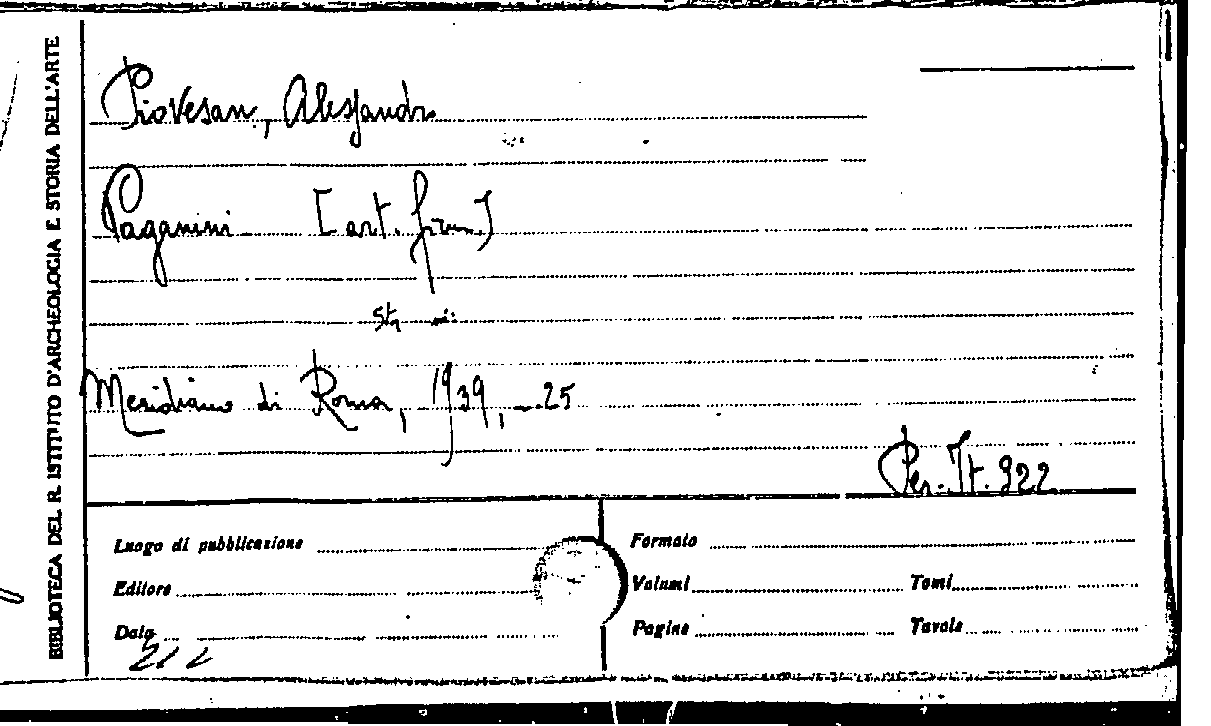 BIBLIOTECA DEL R. ISTITUTO D'ARCHEOLOGIA E STORIA DELL'ARTE
Piovesan, Alessandro
Paganini [art. firm.]
Meridiano di Roma, 1939, n. 25
Per. It. 922
Luogo di pubblicazione
Formato
Editore
Volumi
Tomi
Data
Pagine
Tavole